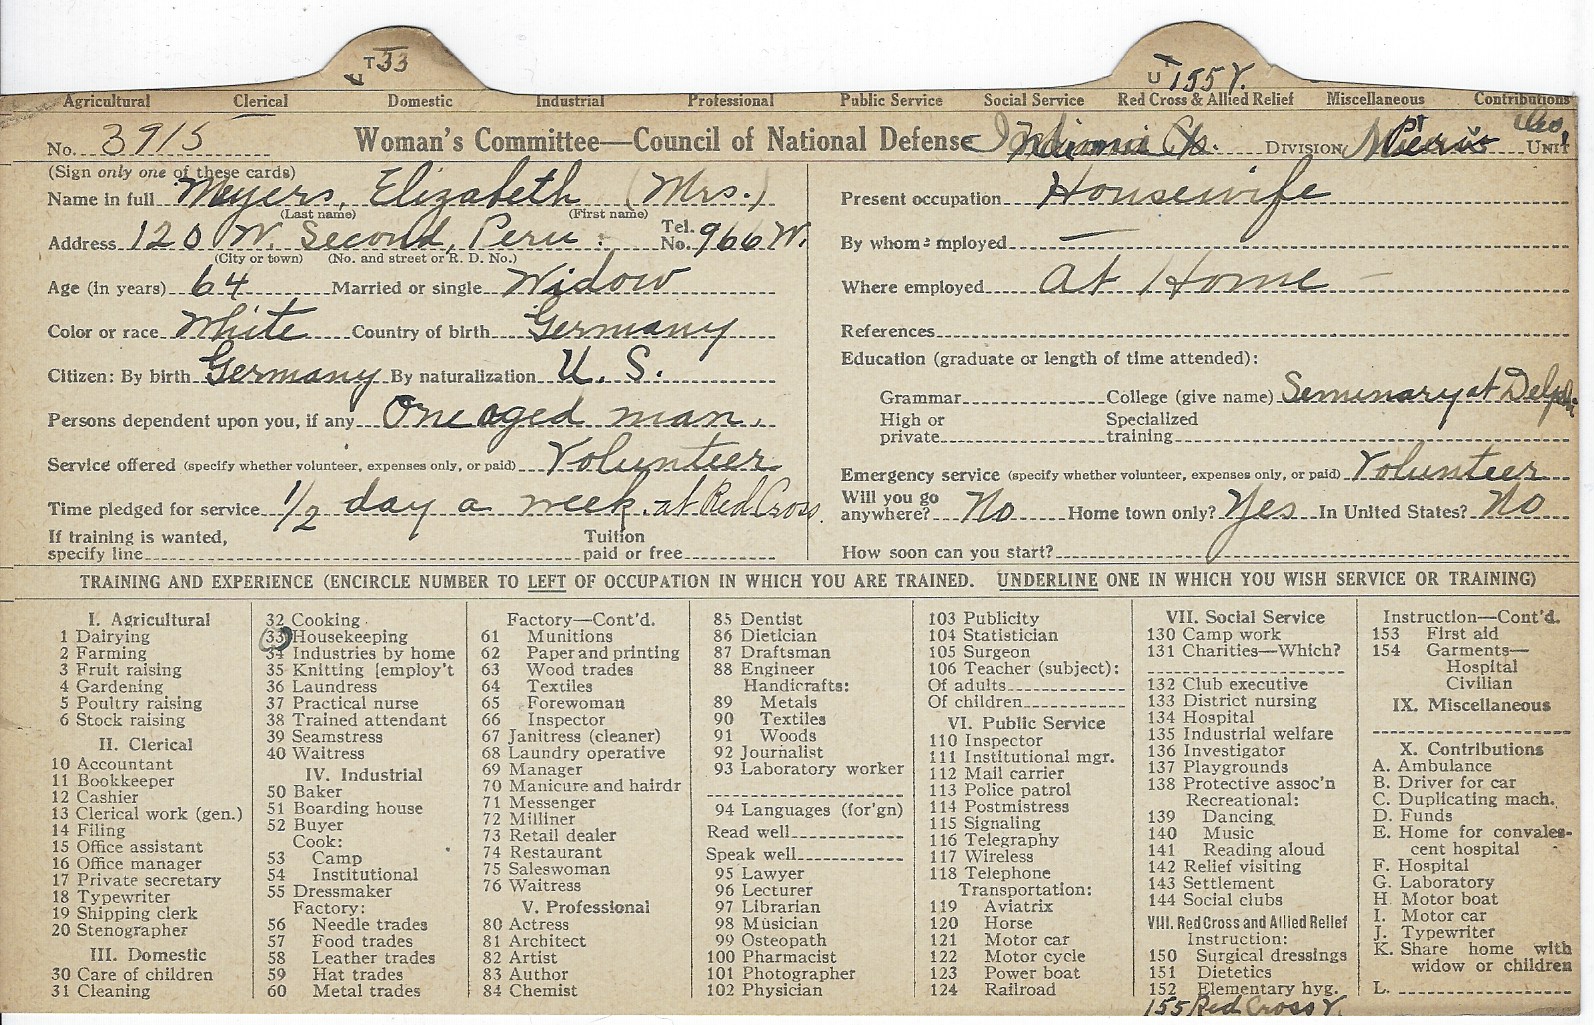 T 33
U 155 V.
Agricultural Clerical Domestic Industrial Professional Public Service Social Service Red Cross & Allied Relief Miscellaneous Contributions
No. 3915 Woman's Committee—Council of National Defense DIVISION UNIT
(Sign only one of these cards)
Name in full Meyers, Elizabeth (Mrs.)
(Last name) (First name)
Address 120 W. Second, Peru. Tel. No. 966 W.
(City or town) (No. and street or R. D. No.)
Age (in years) 64 Married or single Widow
Color or race White Country of birth Germany
Citizen: By birth Germany By naturalization U. S.
Persons dependent upon you, if any One aged man.
Service offered (specify whether volunteer, expenses only, or paid) Volunteer
Time pledged for service 1/2 day a week. at Red Cross.
If training is wanted,
specify line
Tuition
paid or free
Present occupation Housewife
By whom employed —
Where employed at Home —
References
Education (graduate or length of time attended):
Grammar College (give name) Seminary at Delphi
High or
private
Specialized
training
Emergency service (specify whether volunteer, expenses only, or paid) Volunteer
Will you go
anywhere? No Home town only? Yes In United States? No
How soon can you start?
TRAINING AND EXPERIENCE (ENCIRCLE NUMBER TO LEFT OF OCCUPATION IN WHICH YOU ARE TRAINED. UNDERLINE ONE IN WHICH YOU WISH SERVICE OR TRAINING)
I. Agricultural
1 Dairying
2 Farming
3 Fruit raising
4 Gardening
5 Poultry raising
6 Stock raising
II. Clerical
10 Accountant
11 Bookkeeper
12 Cashier
13 Clerical work (gen.)
14 Filing
15 Office assistant
16 Office manager
17 Private secretary
18 Typewriter
19 Shipping clerk
20 Stenographer
III. Domestic
30 Care of children
31 Cleaning
32 Cooking
33 Housekeeping
34 Industries by home
35 Knitting [employ't
36 Laundress
37 Practical nurse
38 Trained attendant
39 Seamstress
40 Waitress
IV. Industrial
50 Baker
51 Boarding house
52 Buyer
Cook:
53 Camp
54 Institutional
55 Dressmaker
Factory:
56 Needle trades
57 Food trades
58 Leather trades
59 Hat trades
60 Metal trades
Factory—Cont'd.
61 Munitions
62 Paper and printing
63 Wood trades
64 Textiles
65 Forewoman
66 Inspector
67 Janitress (cleaner)
68 Laundry operative
69 Manager
70 Manicure and hairdr
71 Messenger
72 Milliner
73 Retail dealer
74 Restaurant
75 Saleswoman
76 Waitress
V. Professional
80 Actress
81 Architect
82 Artist
83 Author
84 Chemist
85 Dentist
86 Dietician
87 Draftsman
88 Engineer
Handicrafts:
89 Metals
90 Textiles
91 Woods
92 Journalist
93 Laboratory worker
94 Languages (for'gn)
Read well
Speak well
95 Lawyer
96 Lecturer
97 Librarian
98 Musician
99 Osteopath
100 Pharmacist
101 Photographer
102 Physician
103 Publicity
104 Statistician
105 Surgeon
106 Teacher (subject):
Of adults
Of children
VI. Public Service
110 Inspector
111 Institutional mgr.
112 Mail carrier
113 Police patrol
114 Postmistress
115 Signaling
116 Telegraphy
117 Wireless
118 Telephone
Transportation:
119 Aviatrix
120 Horse
121 Motor car
122 Motor cycle
123 Power boat
124 Railroad
VII. Social Service
130 Camp work
131 Charities—Which?
132 Club executive
133 District nursing
134 Hospital
135 Industrial welfare
136 Investigator
137 Playgrounds
138 Protective assoc'n
Recreational:
139 Dancing
140 Music
141 Reading aloud
142 Relief visiting
143 Settlement
144 Social clubs
VIII. Red Cross and Allied Relief
Instruction:
150 Surgical dressings
151 Dietetics
152 Elementary hyg.
155 Red Cross V.
Instruction—Cont'd.
153 First aid
154 Garments—
Hospital
Civilian
IX. Miscellaneous
X. Contributions
A. Ambulance
B. Driver for car
C. Duplicating mach.
D. Funds
E. Home for convales-
cent hospital
F. Hospital
G. Laboratory
H. Motor boat
I. Motor car
J. Typewriter
K. Share home with
widow or children
L.